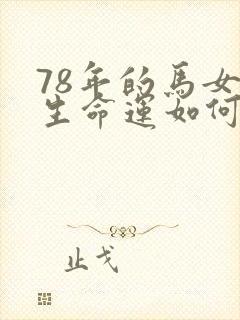 78年的馬女
生命運如何
止戈